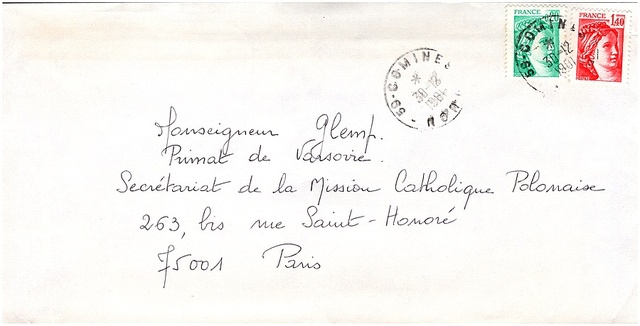 FRANCE
FRANCE 1,40
59-COMINES
30-12
1981
NORD
59-COMINES
30-12
1981
Monseigneur Glemp.
Primat de Varsovie.
Secrétariat de la Mission Catholique Polonaise
263, bis rue Saint-Honoré
75001 Paris